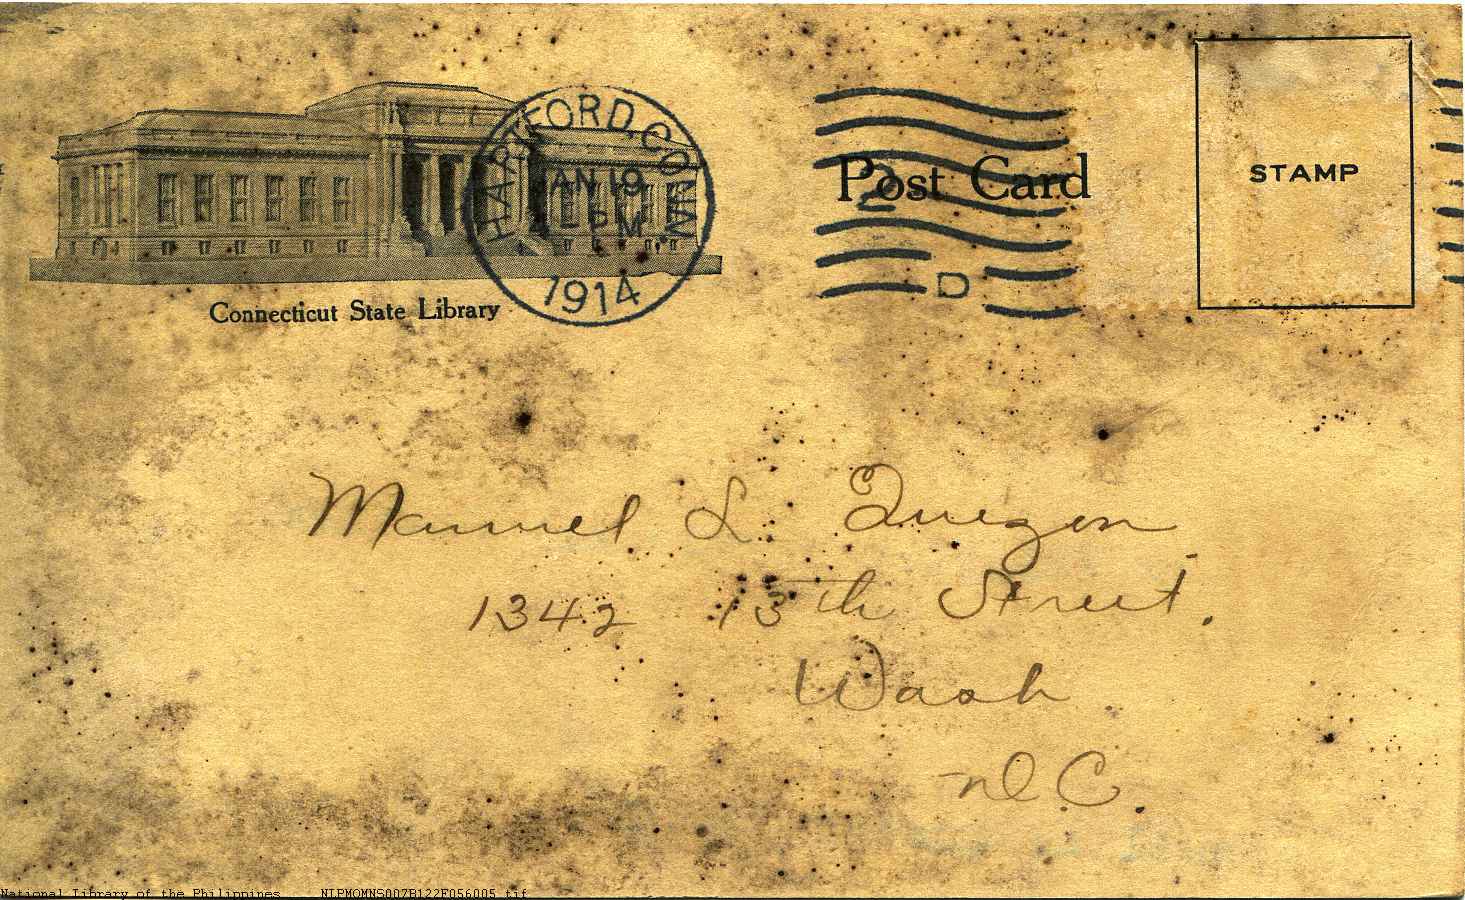 HARTFORD, CONN.
JAN 19
PM
1914
Post Card
2
D
STAMP
Connecticut State Library
Manuel L. Quezon
1342 13th Street.
Wash
D.C.
National Library of the Philippines NLPMOMNS007B122F056005.tif